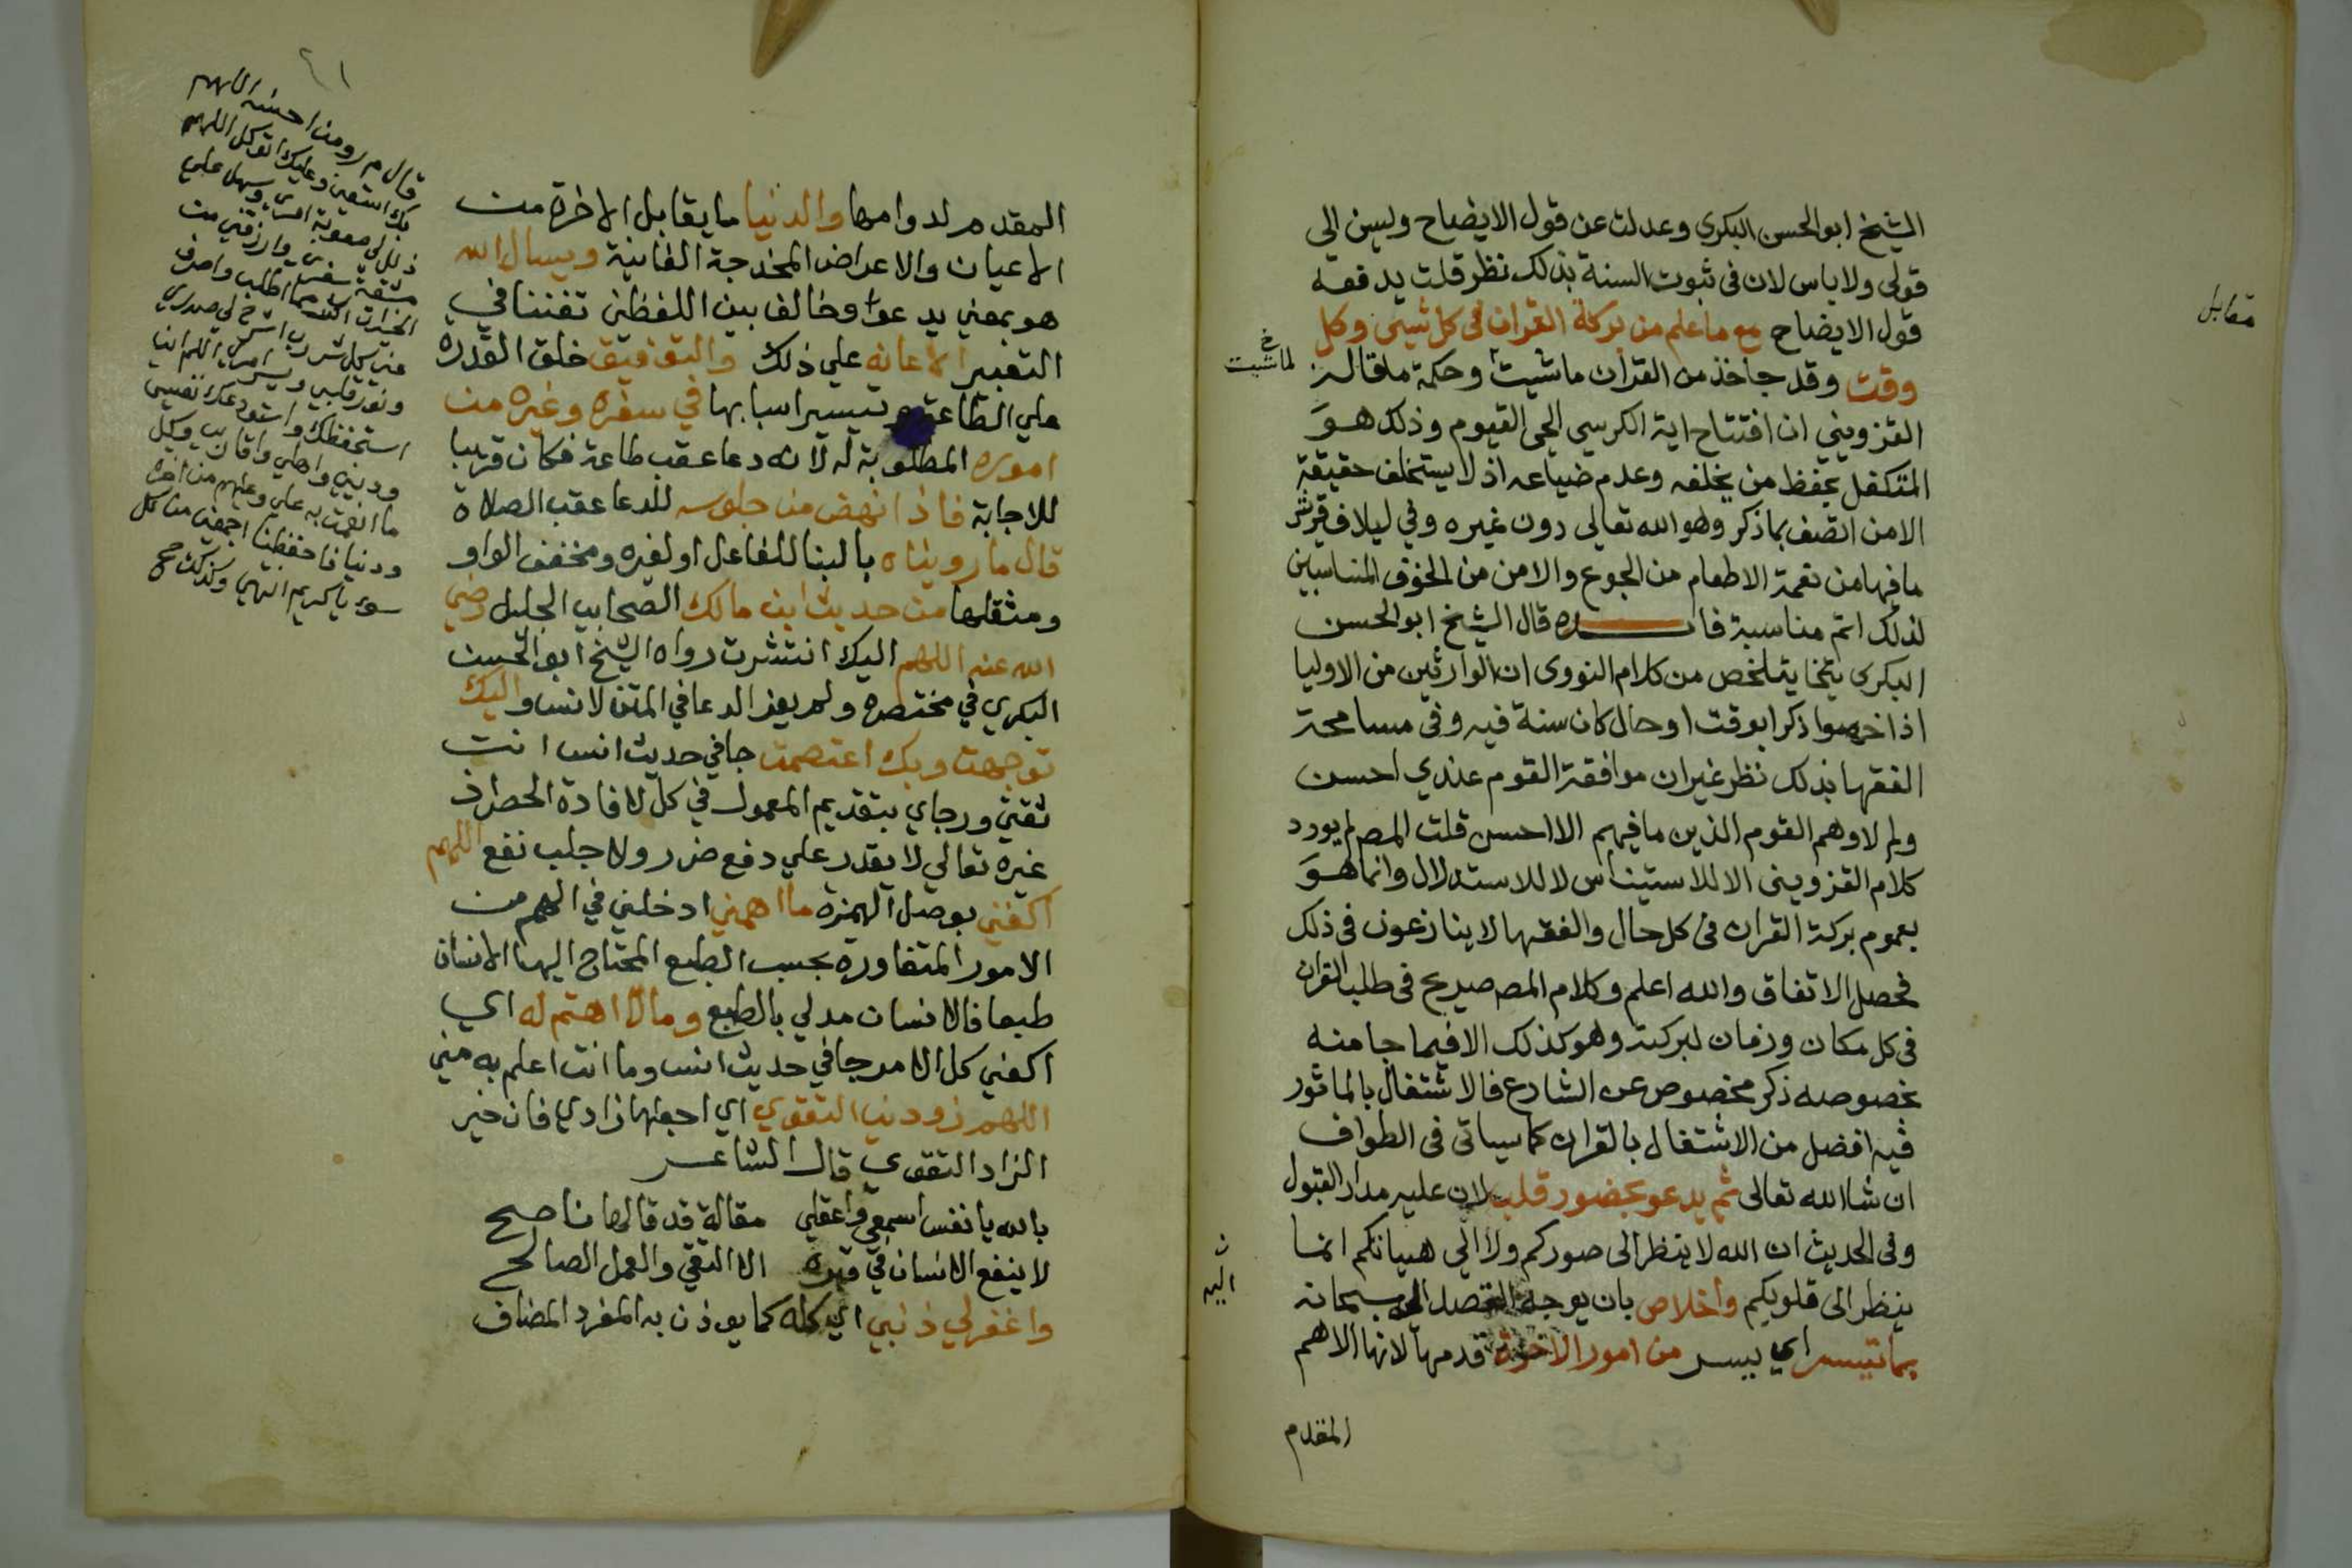 الشيخ ابو الحسن البكري وعدلت عن قول الايضاح وليس الى
قولى ولا باس لان فى ثبوت السنة بذلك نظر قلت يدفعه
قول الايضاح مع ما علم من بركة القران فى كل شيئ وكل
وقت وقد جا خذ من القران ما شيت وحكمة ما قال
القزويني ان افتتاح اية الكرسي الحى القيوم وذلك هو
المتكفل بحفظ من يخلفه وعدم ضياعه اذ لا يستخلف حقيقة
الا من اتصف بما ذكر وهو الله تعالى دون غيره وفي ليلاف قريش
ما فيها من نعمة الاطعام من الجوع والامن من الخوف المناسبين
لذلك اتم مناسبة قال الشيخ ابو الحسن
البكري يتلخص من كلام النووى ان الوارثين من الاوليا
اذا خصوا ذكرا بوقت او حال كان سنة فيه وفى مسامحة
الفقها بذلك نظر غير ان موافقة القوم عندي احسن
ولم لا وهم القوم الذين ما فيهم الا احسن قلت المص لم يورد
كلام القزويني الا للاستيناس لا للاستدلال وانما هو
بعموم بركة القران فى كل حال والفقها لا ينازعون فى ذلك
فحصل الاتفاق والله اعلم وكلام المص صريح فى طلب القران
فى كل مكان وزمان لبركته وهو كذلك الا فيما جا منه
بخصوصه ذكر مخصوص عن الشارع فالاشتغال بالماثور
فيه افضل من الاشتغال بالقران كما سياتى فى الطواف
ان شا الله تعالى ثم يدعو بحضور قلب لان عليه مدار القبول
وفى الحديث ان الله لا ينظر الى صوركم ولا الى هيياتكم انما
ينظر الى قلوبكم واخلاص بان يوجه القصد اليه سبحانه
بما تيسر اي يسر من امور الاخرة قدمها لانها الاهم
المقدم
مقابل
لما شيت
اليه
٤١
المقدم لدوامها والدنيا ما يقابل الاخرة من
الاعيان والاعراض المخدجة الفانية ويسال الله
هو بمعني يدعوا وخالف بين اللفظين تفننا في
التعبير الاعانه علي ذلك والتوفيق خلق القدره
علي الطاعة وتيسير اسبابها في سفره وغيره من
اموره المطلوبة له لانه دعا عقب طاعة فكان قريبا
للاجابة فاذا نهض من جلوسه للدعا عقب الصلاة
قال ما رويناه بالبنا للفاعل او لغيره ومخفف الواو
ومثقلها من حديث انس ابن مالك الصحابي الجليل رضي
الله عنه اللهم اليك انتشرت رواه الشيخ ابو الحسن
البكري في مختصره ولم يعز الدعا في المتن لانس واليك
توجهت وبك اعتصمت جا في حديث انس انت
ثقتي ورجاي بتقديم المعمول في كل لافادة الحصر اذ
غيره تعالي لا يقدر علي دفع ضرر ولا جلب نفع اللهم
اكفني بوصل الهمزه ما اهمني ادخلني في الهم من
الامور المتعاوره بحسب الطبع المحتاج اليها الانسان
طبعا فالانسان مدني بالطبع وما لا اهتم له اي
اكفني كل الامر جا في حديث انس وما انت اعلم به مني
اللهم زودني التقوي اي اجعلها زادي فان خير
الزاد التقوي قال الشاعر
بالله يا نفس اسمعي واعقلي مقالة قد قالها ناصح
لا ينفع الانسان في قبره الا التقي والعمل الصالح
واغفر لي ذنبي اي كله كما يوذن به المفرد المضاف
قال م ر ومن احسنه اللهم
بك استعين وعليك اتوكل اللهم
ذلل لي صعوبة امري وسهل علي
مشقة سفري وارزقني من
الخير اكثر مما اطلب واصرف
عني كل شر رب اشرح لي صدري
ونور قلبي ويسر امري اللهم اني
استحفظك واستودعك نفسي
وديني واهلي واقاربي وكل
ما انعمت به علي وعليهم من اخرة
ودنيا فاحفظنا اجمعين من كل
سوء يا كريم انتهي